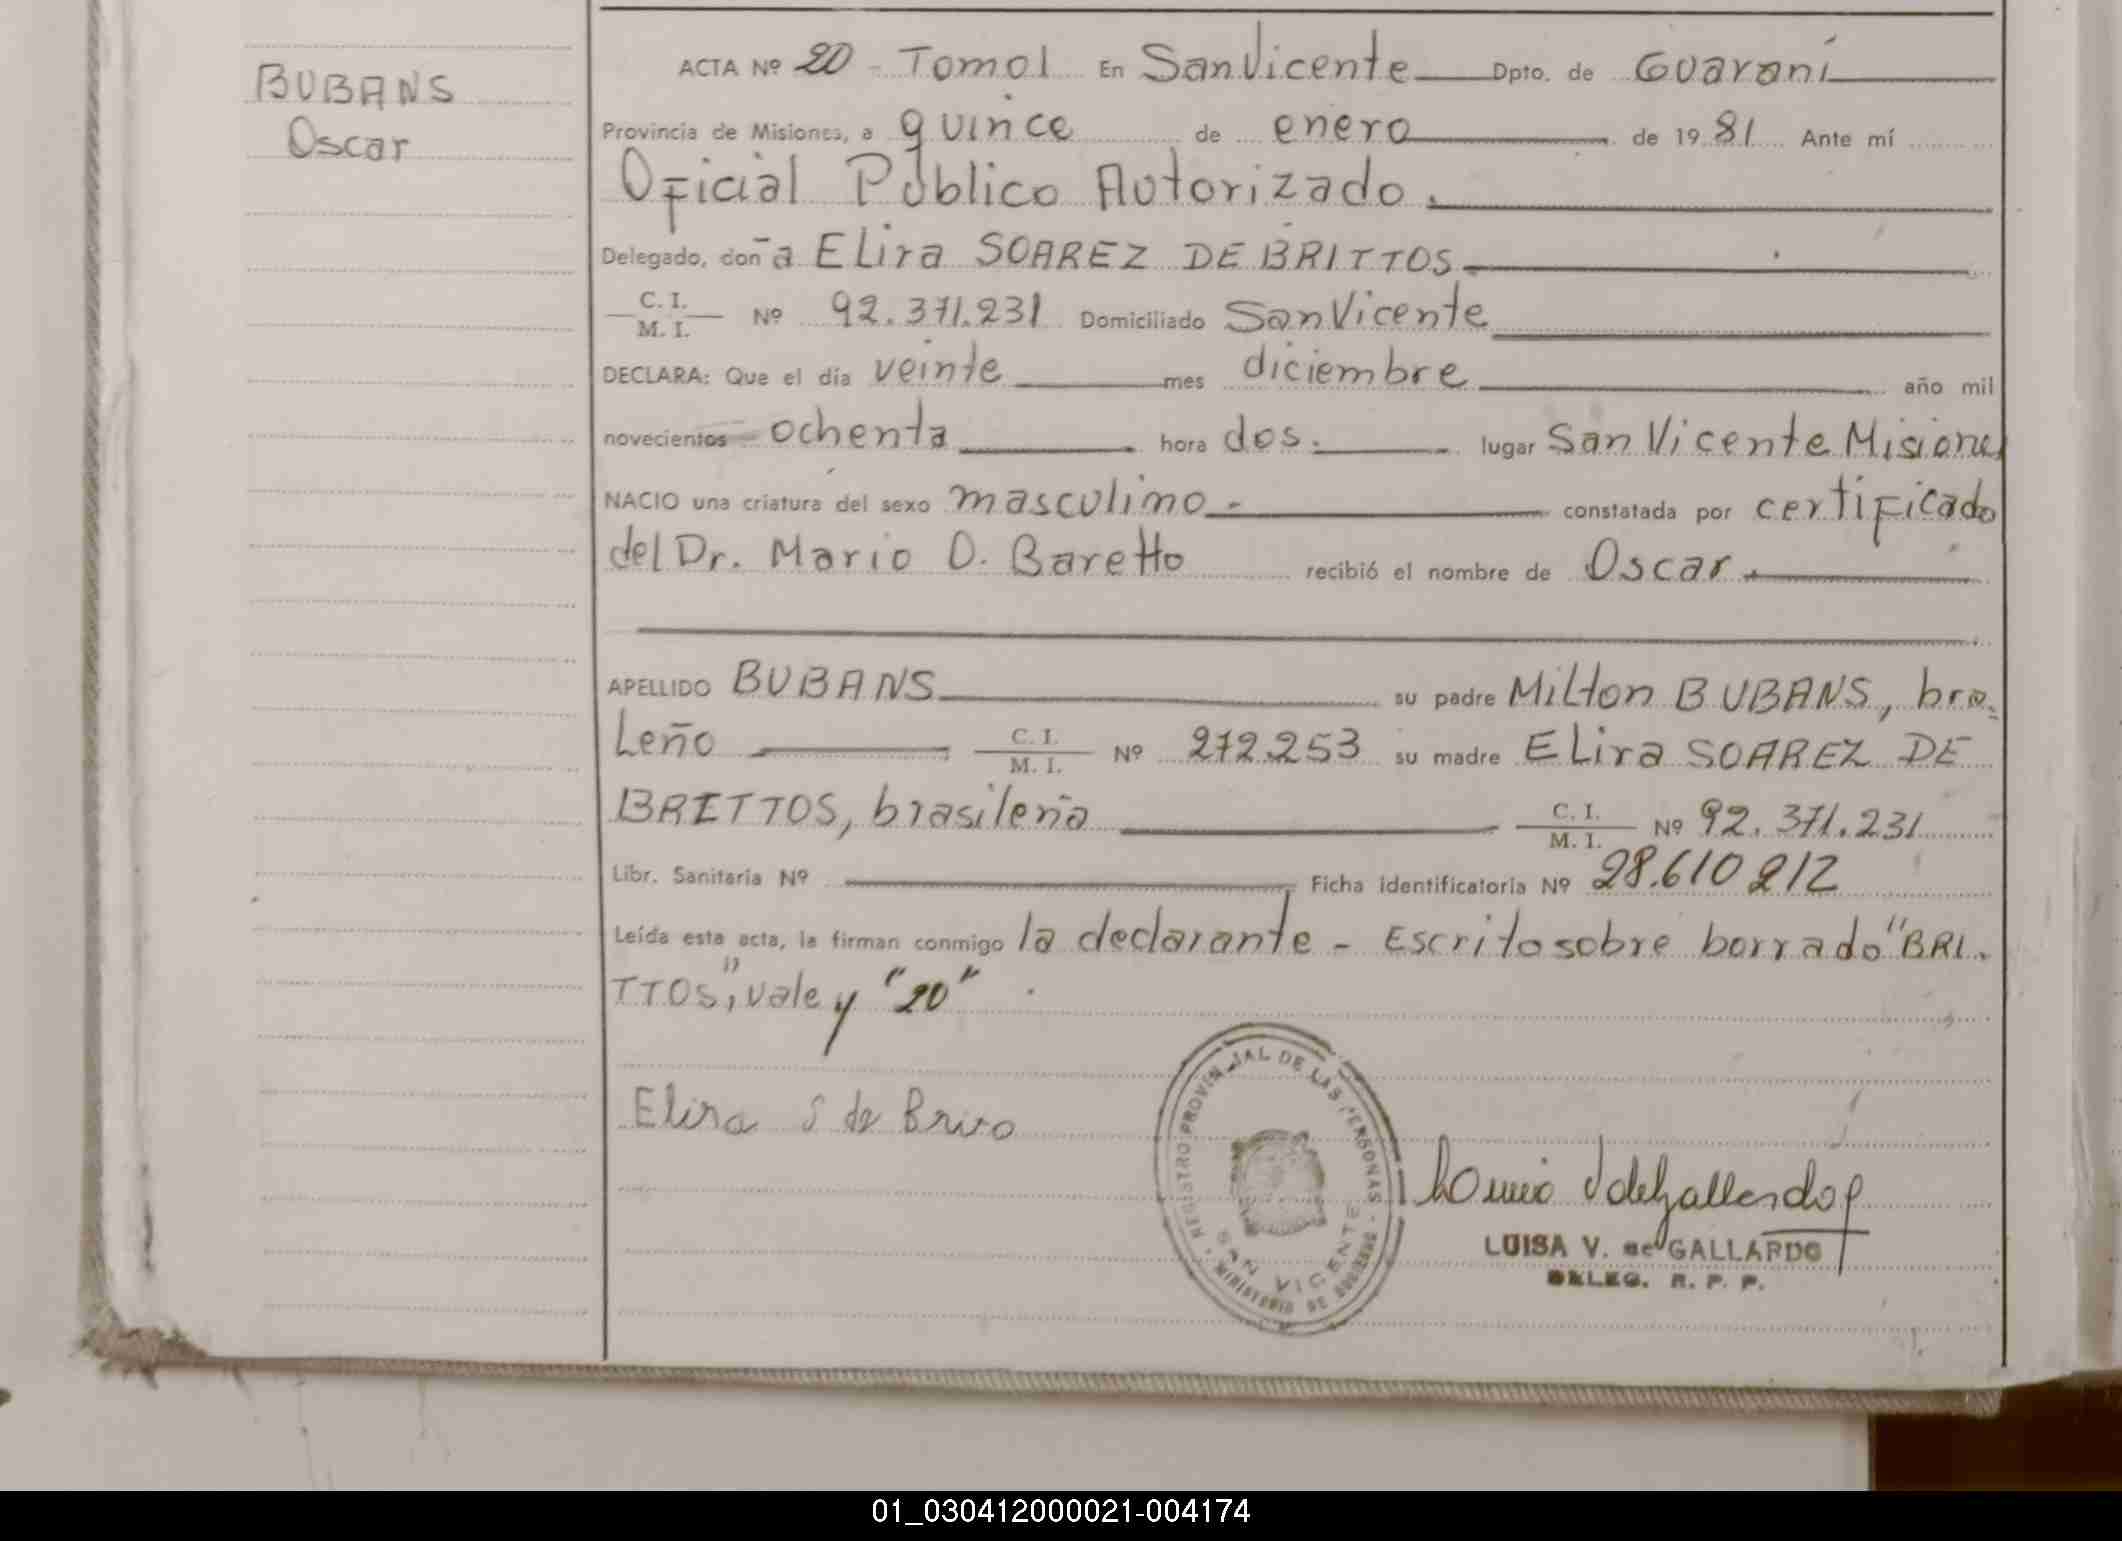 BUBANS
Oscar
ACTA Nº 20 - Tomo I En San Vicente Dpto. de Guaraní
Provincia de Misiones, a quince de enero de 1981 Ante mí
Oficial Público Autorizado.
Delegado, don~a Elira SOAREZ DE BRITTOS
C. I.
M. I. Nº 92.371.231 Domiciliado San Vicente
DECLARA: Que el día veinte mes diciembre año mil
novecientos ochenta hora dos. lugar San Vicente Misiones
NACIO una criatura del sexo masculino.- constatada por certificado
del Dr. Mario O. Baretto recibió el nombre de Oscar.
APELLIDO BUBANS su padre Milton BUBANS, bra.
Leño C. I. M. I. Nº 272.253 su madre Elira SOAREZ DE
BRITTOS, brasileña C. I. M. I. Nº 92.371.231
Libr. Sanitaria Nº Ficha identificatoria Nº 28.610 212
Leída esta acta, la firman conmigo la declarante - Escrito sobre borrado "BRI.
TTOS", vale y "20"
Elira S de Brito
REGISTRO PROVINCIAL DE LAS PERSONAS
SAN VICENTE
MINISTERIO DE GOBIERNO
LUISA V. de GALLARDO
DELEG. R. P. P.
01_030412000021-004174